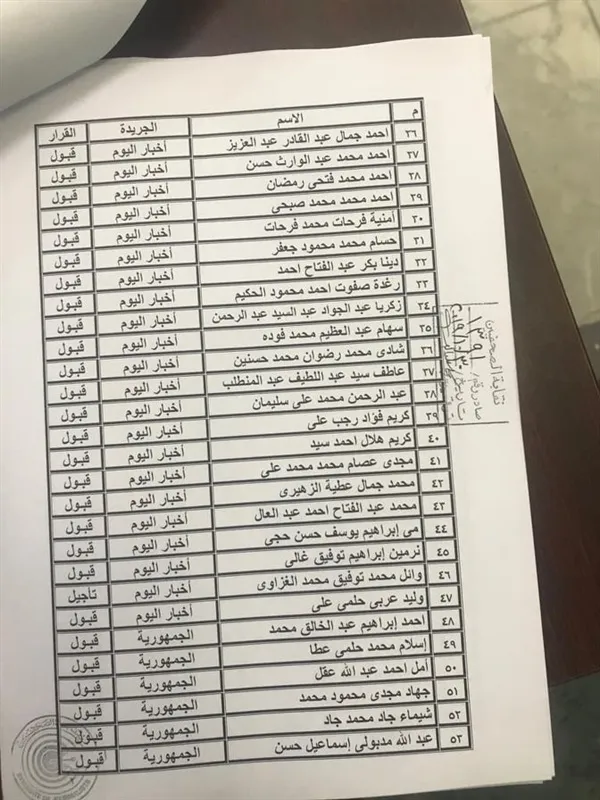 م الاسم الجريدة القرار
٢٦ احمد جمال عبد القادر عبد العزيز أخبار اليوم قبول
٢٧ احمد محمد عبد الوارث حسن أخبار اليوم قبول
٢٨ احمد محمد فتحى رمضان أخبار اليوم قبول
٢٩ احمد محمد محمد صبحى أخبار اليوم قبول
٣٠ أمنية فرحات محمد فرحات أخبار اليوم قبول
٣١ حسام محمد محمود جعفر أخبار اليوم قبول
٣٢ دينا بكر عبد الفتاح احمد أخبار اليوم قبول
٣٣ رغدة صفوت احمد محمود الحكيم أخبار اليوم قبول
٣٤ زكريا عبد الجواد عبد السيد عبد الرحمن أخبار اليوم قبول
٣٥ سهام عبد العظيم محمد فوده أخبار اليوم قبول
٣٦ شادى محمد رضوان محمد حسنين أخبار اليوم قبول
٣٧ عاطف سيد عبد اللطيف عبد المنطلب أخبار اليوم قبول
٣٨ عبد الرحمن محمد على سليمان أخبار اليوم قبول
٣٩ كريم فؤاد رجب على أخبار اليوم قبول
٤٠ كريم هلال احمد سيد أخبار اليوم قبول
٤١ مجدى عصام محمد محمد على أخبار اليوم قبول
٤٢ محمد جمال عطية الزهيرى أخبار اليوم قبول
٤٣ محمد عبد الفتاح احمد عبد العال أخبار اليوم قبول
٤٤ مى إبراهيم يوسف حسن حجى أخبار اليوم قبول
٤٥ نرمين إبراهيم توفيق غالى أخبار اليوم قبول
٤٦ وائل محمد توفيق محمد الغزاوى أخبار اليوم تأجيل
٤٧ وليد عربى حلمى على أخبار اليوم قبول
٤٨ احمد إبراهيم عبد الخالق محمد الجمهورية قبول
٤٩ إسلام محمد حلمى عطا الجمهورية قبول
٥٠ أمل احمد عبد الله عقل الجمهورية قبول
٥١ جهاد مجدى محمود محمد الجمهورية قبول
٥٢ شيماء جاد محمد جاد الجمهورية قبول
٥٣ عبد الله مدبولى إسماعيل حسن الجمهورية قبول
نقابة الصحفيين
صادر رقم / ١٣٩١
تاريخ